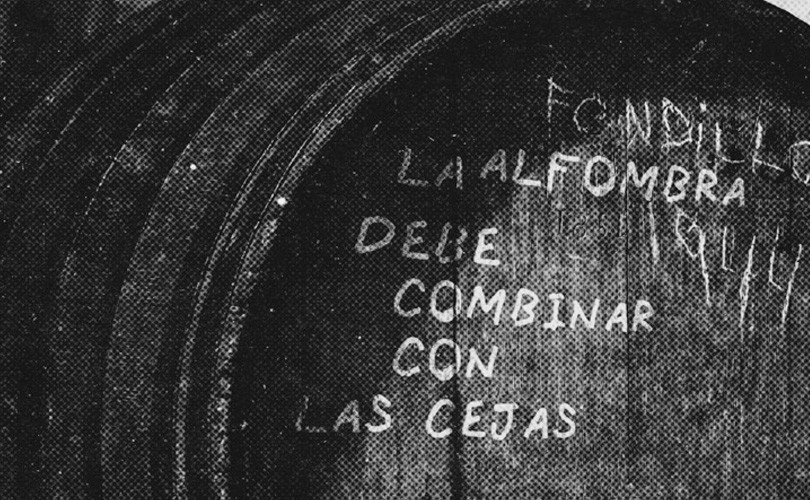 FONDILLO
LA ALFOMBRA
1944
DEBE
COMBINAR
CON
LAS CEJAS